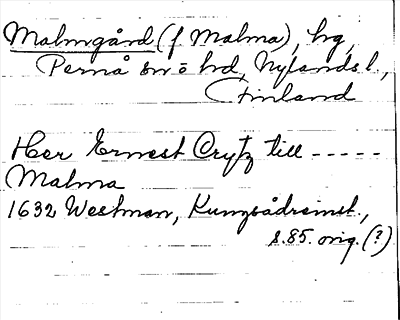 Malmgård (f Malma), hg,
Pernå sn o hd, Nylands l.,
Finland
Her Ernest Crytz till -----
Malma
1632 Westman, Kungsådreinst.,
s.85. orig. (?)